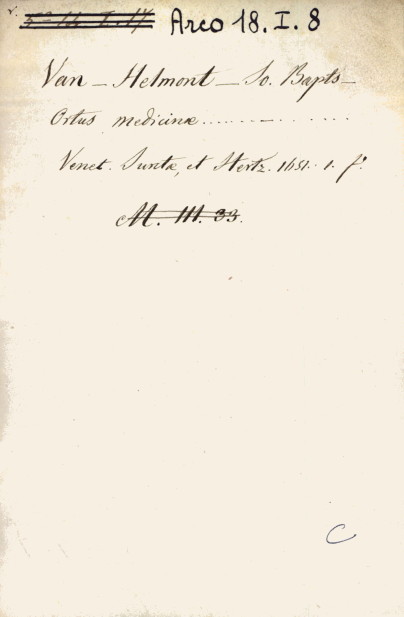 Arco 18. I. 8
Van - Helmont - Jo. Bapts -
Ortus medicinæ
Venet. Juntæ, et Hertz. 1651. 1. f.º
M. III. 33.
C